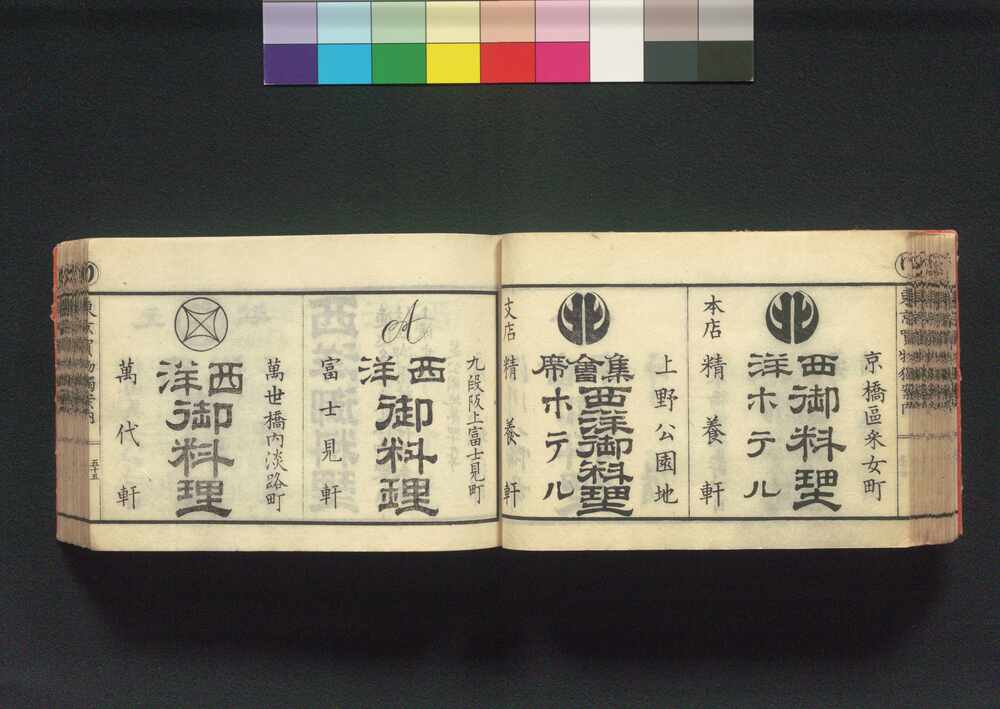 京橋區采女町
西洋御料理
ホテル
本店 精養軒
上野公園地
集會席
西洋御料理
ホテル
支店 精養軒
九段阪上富士見町
西洋御料理
富士見軒
萬世橋內淡路町
西洋御料理
萬代軒
東京買物獨案內
五十五